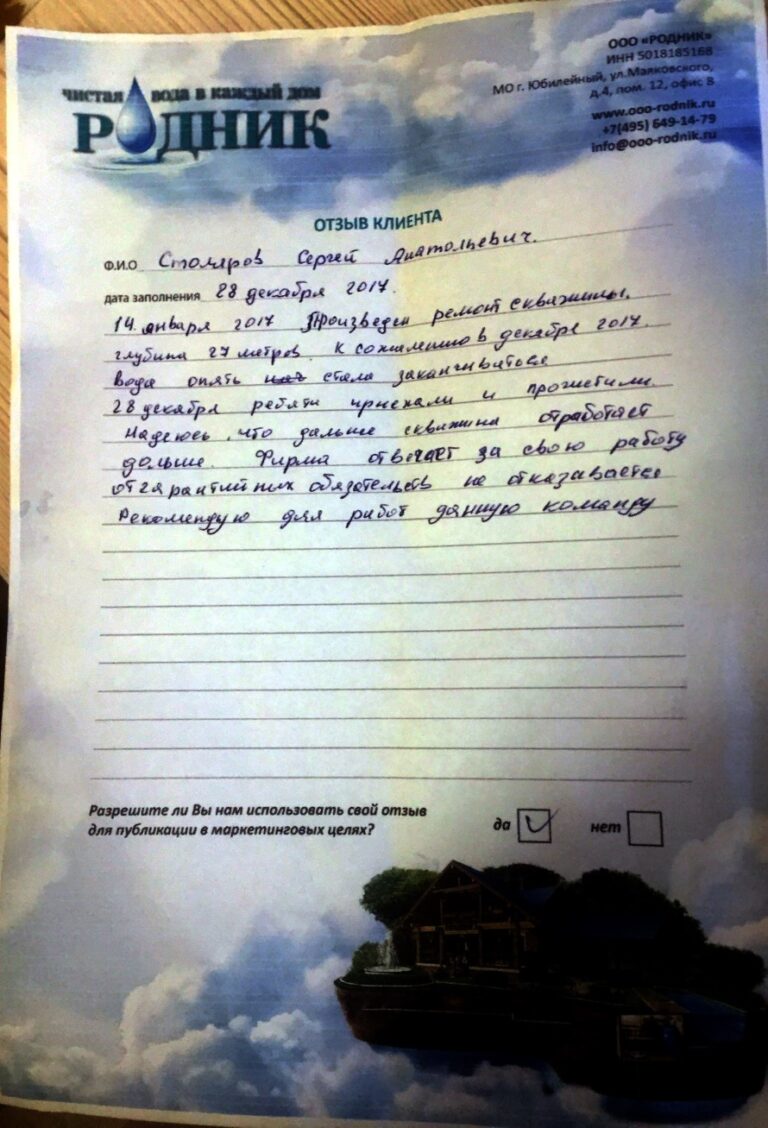 чистая вода в каждый дом
РОДНИК
ООО «РОДНИК»
ИНН 5018185168
МО г. Юбилейный, ул.Маяковского,
д.4, пом. 12, офис 8
www.ooo-rodnik.ru
+7(495) 649-14-79
info@ooo-rodnik.ru
ОТЗЫВ КЛИЕНТА
Ф.И.О Столяров Сергей Анатольевич.
дата заполнения 28 декабря 2017.
14 января 2017 Произведен ремонт скважины.
глубина 27 метров. К сожалению в декабре 2017.
вода опять стала заканчиваться
28 декабря ребята приехали и прочистили.
Надеюсь, что дальше скважина отработает
дольше. Фирма отвечает за свою работу
от гарантийных обязательств не отказывается
Рекомендую для работ данную команду
Разрешите ли Вы нам использовать свой отзыв
для публикации в маркетинговых целях?
да
нет